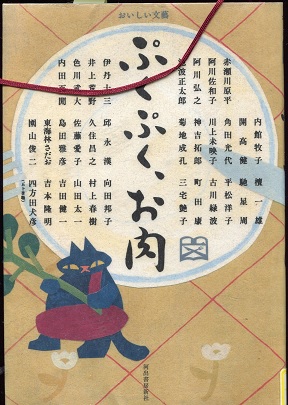 おいしい文藝
ぷくぷく、お肉
内館牧子 檀一雄
赤瀬川原平 開高健 馳星周
阿川佐和子 角田光代 平松洋子
阿川弘之 川上未映子 古川緑波
池波正太郎 神吉拓郎 町田康
菊地成孔 三宅艶子
伊丹十三 邱永漢 向田邦子
井上荒野 久住昌之 村上春樹
色川武大 佐藤愛子 山田太一
内田百閒 島田雅彦 吉田健一
東海林さだお 吉本隆明
園山俊二 四方田犬彦
(五十音順)
河出書房新社